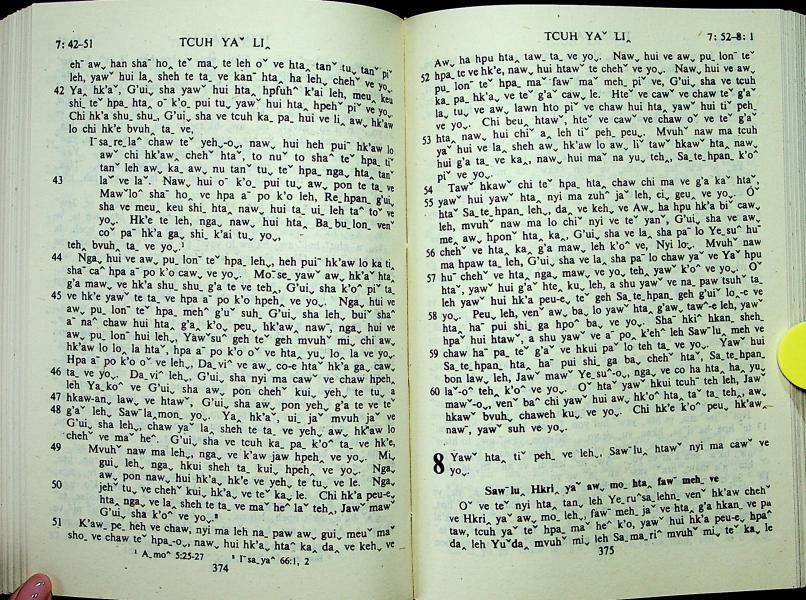 7: 42-51
TCUH YAˇ LI‸
ehˉ aw˯ han shaˉ ho‸ teˇ ma˯ te leh oˇ ve hta˯ tanˇ tu˯ tanˇ piˇ
leh, yawˇ hui la˯ sheh te ta˯ ve kanˉ hta‸ ha leh˯ chehˇ ve yo˯.
42 Ya‸ hk'aˇ, G'ui˯ sha yawˇ hui hta˯ hpfuhˆ k'ai leh, meu˯ keu
shi‸ teˇ hpa hta˯ oˆ k'o˯ pui tu˯ yawˇ hui hta˯ hpehˇ piˇ ve yo˯.
Chi hk'a shu˯ shu˯ G'ui˯ sha ve tcuh ka‸ pa˯ hui ve li˯ aw˯ hk'aw
lo chi hk'e bvuh‸ ta˯ ve,
Iˉsa‸re‸laˆ chaw teˇ yeh˯-o˯, naw˯ hui heh puiˇ hk'aw lo
awˇ chi hk'aw˯ chehˇ htaˇ, to nuˇ to shaˆ teˇ hpa‸ tiˇ
tanˇ leh aw˯ ka˯ aw˯ nu tanˇ tu˯ teˇ hpa‸ nga˯ hta‸ tanˇ
43 laˇ ve laˇ. Nawˬ hui oˉ k'o‸ pui tu˯ aw˯ pon te ta‸ ve
Mawˇloˆ shaˉ ho˯ ve hpa aˉ po k'o leh, Re‸hpan‸ g'ui˯
sha ve meu˯ keu shi‸ hta˯ naw˯ hui ta˯ ui˯ leh taˆ toˇ ve
yo˯. Hk'e te leh, nga˯ naw˯ hui hta˯ Ba‸bu‸lon‸ venˇ
coˇ paˉ hk'a ga˯ shi‸ k'ai tu yo˯,
teh‸ bvuh‸ ta‸ ve yo˯.¹
44 Nga˯ hui ve aw˯ pu‸ lonˉ teˇ hpa leh˯, heh puiˇ hk'aw lo ka ti‸
shaˉ caˆ hpa aˉ po k'o caw˯ ve yo˯. Moˉse‸ yawˇ aw˯ hk'aˇ hta˯
g'a maw˯ ve hk'a shu˯ shu˯ g'a te ve teh˯, G'ui˯ sha k'oˆ piˇ ta‸
45 ve hk'e yawˇ te ta‸ ve hpa aˉ po k'o hpeh‸ ve yo˯. Nga˯ hui ve
aw˯ pu‸ lonˉ teˇ hpa‸ mehˆ g'uˇ suh˯ G'ui˯ sha leh˯ buiˇ shaˆ
aˉ naˆ chaw hui hta˯ g'a˯ k'o˯ peu˯ hk'aw˯ nawˉ, nga˯ hui ve
aw˯ pu‸ lonˉ hui leh˯, Yawˇsuˆ geh teˇ geh mvuhˇ mi˯ chi aw˯
hk'aw lo lo˯ la htaˇ, hpa aˉ po k'o oˇ ve hta˯ yu˯ lo˯ la ve yo˯.
Hpa aˉ po k'o oˇ ve leh˯, Da‸viˆ ve aw˯ co-e htaˇ hk'a ga˯ caw˯
46 ta‸ ve yo˯. Da‸viˆ leh˯, G'ui˯ sha nyi ma caw˯ ve chaw hpeh‸
leh Ya‸koˆ ve G'ui˯ sha aw˯ pon chehˇ kui˯ yeh‸ te tu˯ a
47 hkaw-an‸ law˯ ve htawˇ, G'ui˯ sha aw˯ pon yeh‸ g'a te ve teˇ
48 g'aˇ leh, Sawˉla‸mon‸ yo˯. Ya‸ hk'aˇ, ui˯ jaˇ mvuh jaˇ ve
G'ui˯ sha leh˯, chaw yaˇ la˯ sheh te ta‸ ve yeh‸ aw˯ hk'aw lo
chehˇ ve maˇ heˆ. G'ui˯ sha ve tcuh ka‸ pa˯ k'oˆ ta‸ ve hk'e,
49 Mvuhˇ naw ma leh˯, nga˯ ve k'aw jaw hpeh‸ ve yo˯. Mi˯
gui˯ leh˯ nga˯ hkui sheh ta‸ kui˯ hpeh‸ ve yo˯. Nga˯
aw˯ pon naw˯ hui hk'a˯ hk'e ve yeh‸ te tu˯ ve le. Nga˯
50 jehˇ tu˯ ve chehˇ kui˯ hk'a˯ ve teˇ ka‸ le. Chi hk'a peu-e˯
hta˯ nga˯ ve la˯ sheh te ta‸ ve maˇ heˆ laˇ teh˯, Jawˇ mawˇ
G'ui˯ sha k'oˆ ve yo˯.²
51 K'aw˯ pe‸ heh ve chaw˯ nyi ma leh na‸ paw aw˯ gui˯ meuˇ maˇ
sho˯ ve chaw teˇ hpa‸-o˯, naw˯ hui hk'a˯ htaˆ ka‸ da˯ ve keh˯ ve
¹ A‸moˆ 5:25-27 ² Iˉsa‸yaˆ 66:1, 2
374
TCUH YAˇ LI‸
7: 52-8: 1
Aw˯ ha hpu hta˯ taw‸ ta‸ ve yo˯. Naw˯ hui ve aw˯ pu‸ lonˉ teˇ
52 hpa‸ te ve hk'e, naw˯ hui htawˇ te chehˇ ve yo˯. Naw˯ hui ve aw˯
pu‸ lonˉ teˇ hpa‸ maˇ fawˇ maˇ meh‸ piˇ ve, G'ui˯ sha ve tcuh
ka‸ pa˯ hk'a˯ ve teˇ g'aˇ caw˯ le. Hteˇ ve cawˇ ve chaw teˇ g'aˇ
la˯ tu˯ ve aw˯ lawn hto piˇ ve chaw hui hta˯ yawˇ hui tiˇ peh‸
ve yo˯. Chi beu˯ htawˇ, hteˇ ve cawˇ ve chaw oˇ te g'aˇ
53 hta˯ naw˯ hui chiˇ a˯ leh tiˇ peh‸ peu˯. Mvuhˇ naw ma tcuh
yaˇ hui ve la˯ sheh aw˯ hk'aw lo aw˯ liˇ tawˇ hkawˇ hta˯ naw˯
hui g'a ta‸ ve ka‸, naw˯ hui maˇ na yu˯ teh˯, Sa‸te‸hpan‸ k'oˆ
piˇ ve yo˯.
54 Tawˇ hkawˇ chi teˇ hpa‸ hta˯ chaw chi ma ve g'a kaˇ htaˇ,
55 yawˇ hui yawˇ hta˯ nyi ma zuhˆ jaˇ leh, ci˯ geu‸ ve yo˯. Oˇ
htaˇ Sa‸te‸hpan‸ leh˯, da˯ ve keh˯ ve Aw˯ ha hpu hk'a biˇ caw˯
leh, mvuhˇ naw ma lo chiˆ nyi ve teˇ yanˇ, G'ui˯ sha ve aw˯
me˯ aw˯ hponˇ hta˯ ka‸, G'ui˯ sha ve la˯ sha paˉ lo Ye‸suˆ huˉ
56 chehˇ ve hta˯ ka‸ g'a maw˯ leh k'oˆ ve, Nyi lo˯. Mvuhˇ naw
ma hpaw ta‸ leh, G'ui˯ sha ve la˯ sha paˉ lo chaw yaˇ ve Yaˇ hpu
57 huˉ chehˇ ve hta˯ nga˯ maw˯ ve yo˯ teh˯ yawˇ k'oˆ ve yo˯. Oˇ
htaˇ, yawˇ hui g'aˇ hte˯ ku˯ leh, a shu yawˇ ve na‸ paw tsuhˇ ta‸
leh yawˇ hui hk'a peu-e˯ teˇ geh Sa‸te‸hpan‸ geh g'uiˇ lo˯-e ve
58 yo˯. Peu˯ leh, venˇ aw˯ ba˯ lo yawˇ hta˯ g'aw˯ tawˆ-e leh, yawˇ
hta˯ haˉ pui shi‸ ga hpoˆ ba˯ ve yo˯. Shaˉ hkiˆ hkan‸ sheh‸
hpaˇ hui htawˇ, a shu yawˇ ve aˉ po‸ k'ehˆ leh Sawˉlu‸ meh ve
59 chaw haˉ pa‸ teˇ g'aˇ ve hkui paˇ lo teh ta‸ ve yo˯. Yawˇ hui
Sa‸te‸hpan‸ hta˯ haˉ pui shi‸ ga ba˯ chehˇ htaˇ, Sa‸te‸hpan‸
bon law˯ leh, Jawˇ mawˇ Ye‸suˆ-o˯, nga˯ ve co ha hta˯ ha‸ yu˯
60 laˇ-oˆ teh˯ k'oˆ ve yo˯. Oˇ htaˇ yawˇ hkui tcuhˉ teh leh, Jawˇ
mawˇ-o˯, venˇ baˉ chi yawˇ hui aw˯ hk'oˆ hta˯ taˇ ta‸ teh˯, aw˯
hkawˇ bvuh‸ chaweh ku˯ ve yo˯. Chi hk'e k'oˆ peu˯ hk'aw˯
nawˉ, yawˇ suh ve yo˯.
8 Yawˇ hta˯ tiˇ peh‸ ve leh˯, Sawˉlu‸ htawˇ nyi ma cawˇ ve
yo˯.
Sawˉlu‸ Hkri‸ yaˇ aw˯ mo‸ hta˯ fawˇ meh‸ ve
Oˇ ve teˇ nyi hta˯ tan˯ leh Ye‸ruˆsa‸lehn‸ venˇ hk'aw chehˇ
ve Hkri‸ yaˇ aw˯ mo‸ leh˯, fawˇ meh‸ jaˇ ve hta˯ g'a hkan‸ ve pa
taw, tcuh yaˇ teˇ hpa‸ maˇ heˆ k'o, yawˇ hui hk'a peu-e˯ hpaˆ
da‸ leh Yuˇda‸ mvuhˇ mi˯ leh Sa‸ma‸riˆ mvuhˇ mi˯ teˇ ka‸ le
375